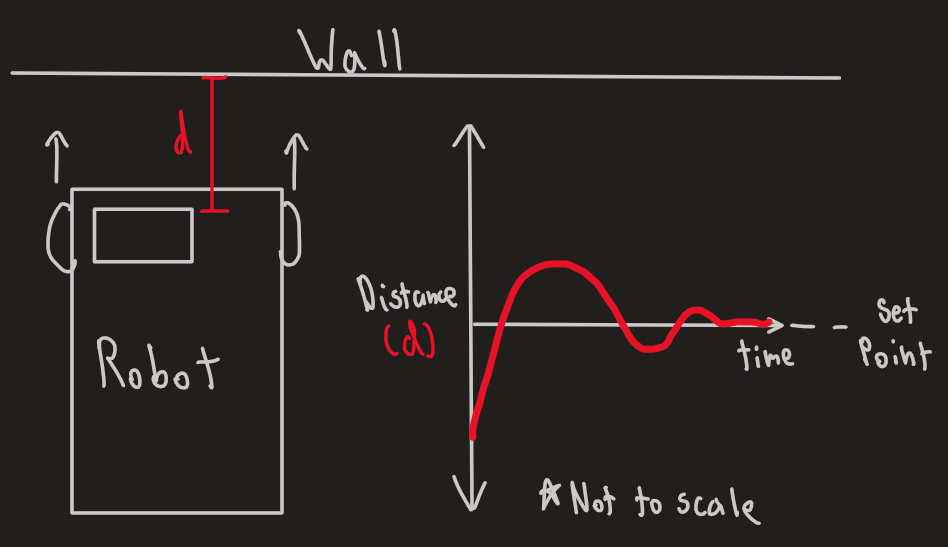 Wall
d
Robot
Distance
(d)
time
Set
Point
*Not to scale